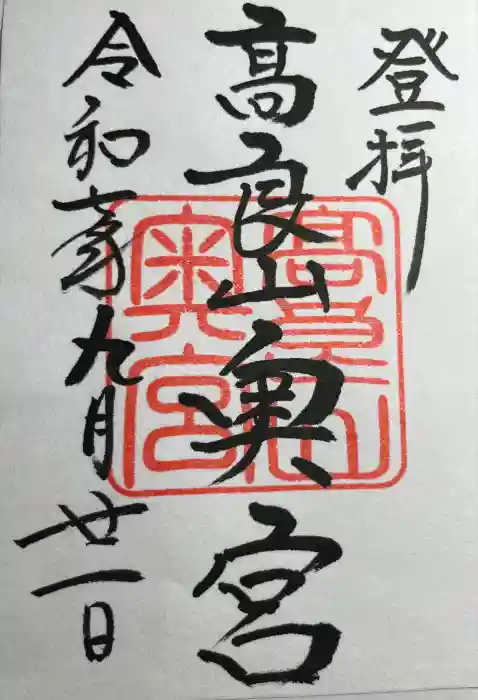 登拝
高良山奥宮
令和七年九月廿一日
高良山
奥宮